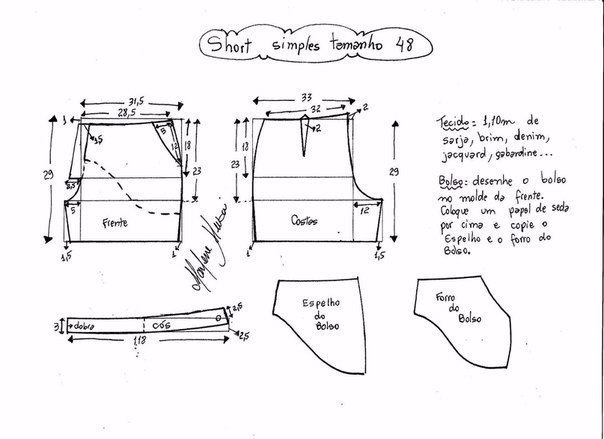 Short simples tamanho 48
31,5
28,5
1
1,5
5
12
18
23
29
3,5
5
1,5
Frente
Marlene Mukai
33
32
2
2
18
23
29
12
1,5
Costas
Tecido: 1,10m de
sarja, brim, denim,
jacquard, gabardine...
Bolso: desenhe o bolso
no molde da frente.
Coloque um papel de seda
por cima e copie o
Espelho e o forro do
Bolso.
3
dobra
cós
2,5
2,5
118
Espelho
do
Bolso
Forro
do
Bolso